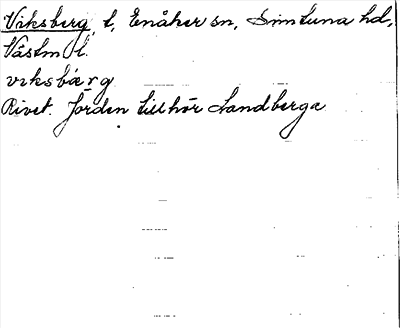 Viksberg, t, Enåker sn, Simtuna hd,
Västm l.
viksbærg
Rivet. Jorden tillhör Sandberga